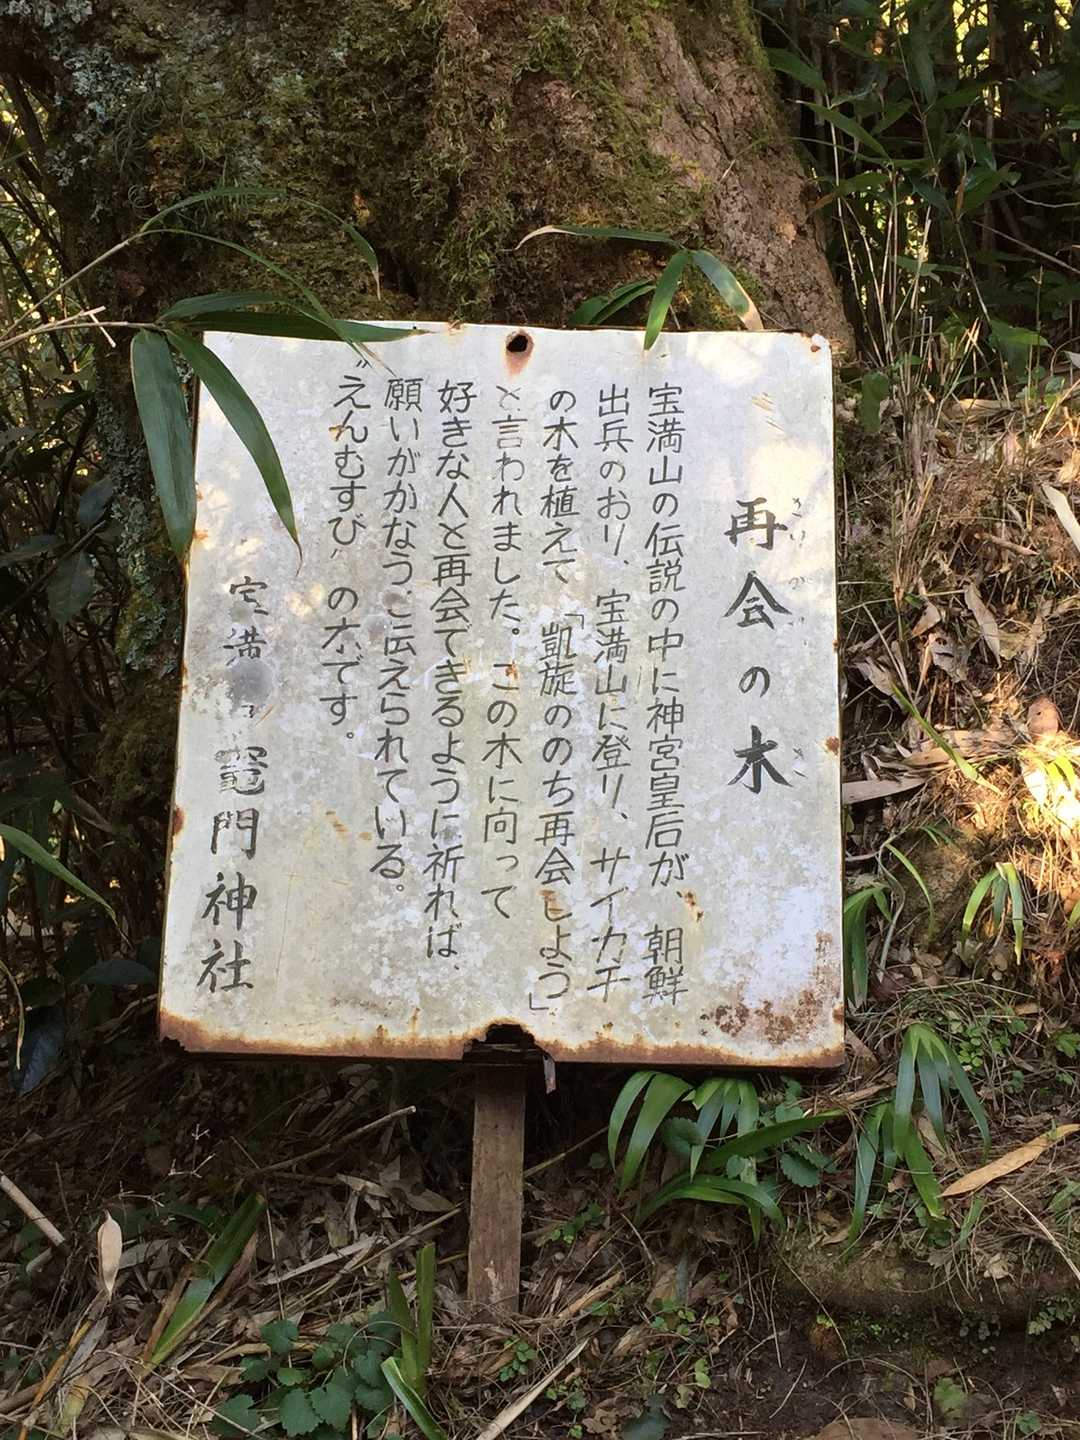 再会の木
さいかい き
宝満山の伝説の中に神宮皇后が、朝鮮
出兵のおり、宝満山に登り、サイカチ
の木を植えて「凱旋ののち再会しよう」
と言われました。この木に向って
好きな人と再会できるように祈れば、
願いがかなうと伝えられている。
“えんむすび”の木です。
宝満 竈門神社